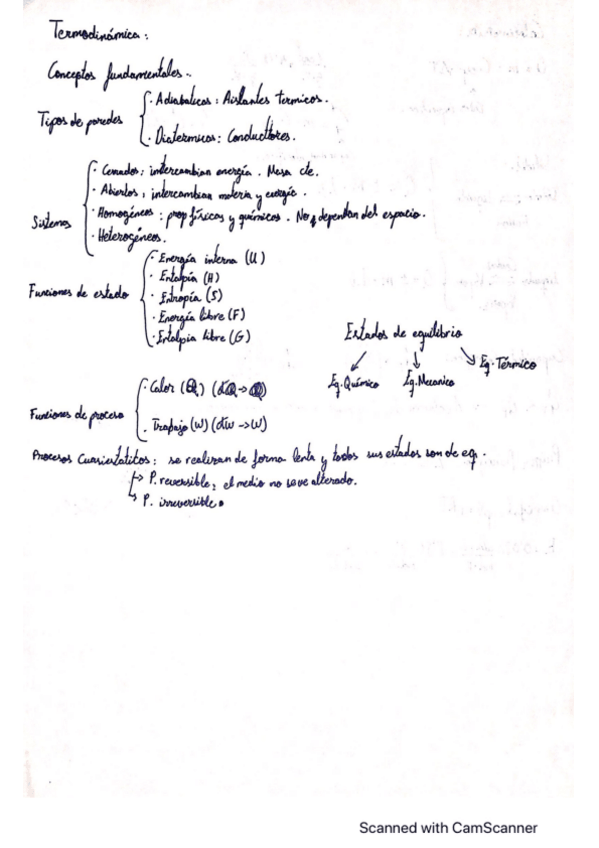 Termodinámica:
Conceptos fundamentales..
Tipos de paredes
· Adiabaticas: Aislantes termicos.
· Diatermicas: Conductores.
Sistemas
· Cerrados: intercambian energía. Masa cte.
· Abiertos, intercambian materia y energía.
· Homogéneos: prop físicas y químicas. No dependan del espacio.
· Heterogéneos.
Funciones de estado
· Energía interna (U)
· Entalpía (H)
· Entropía (S)
· Energía libre (F)
· Entalpia libre (G)
Estados de equilibrio
Eq. Químico
Eq. Mecanico
Eq. Térmico
Funciones de proceso
· Calor (Q) (dQ → Q)
· Trabajo (W) (dW → W)
Procesos Cuasiestatitos: se realizan de forma lenta y todos sus estados son de eq.
↳ P. reversible, el medio no se ve alterado.
↳ P. irreversible
Scanned with CamScanner